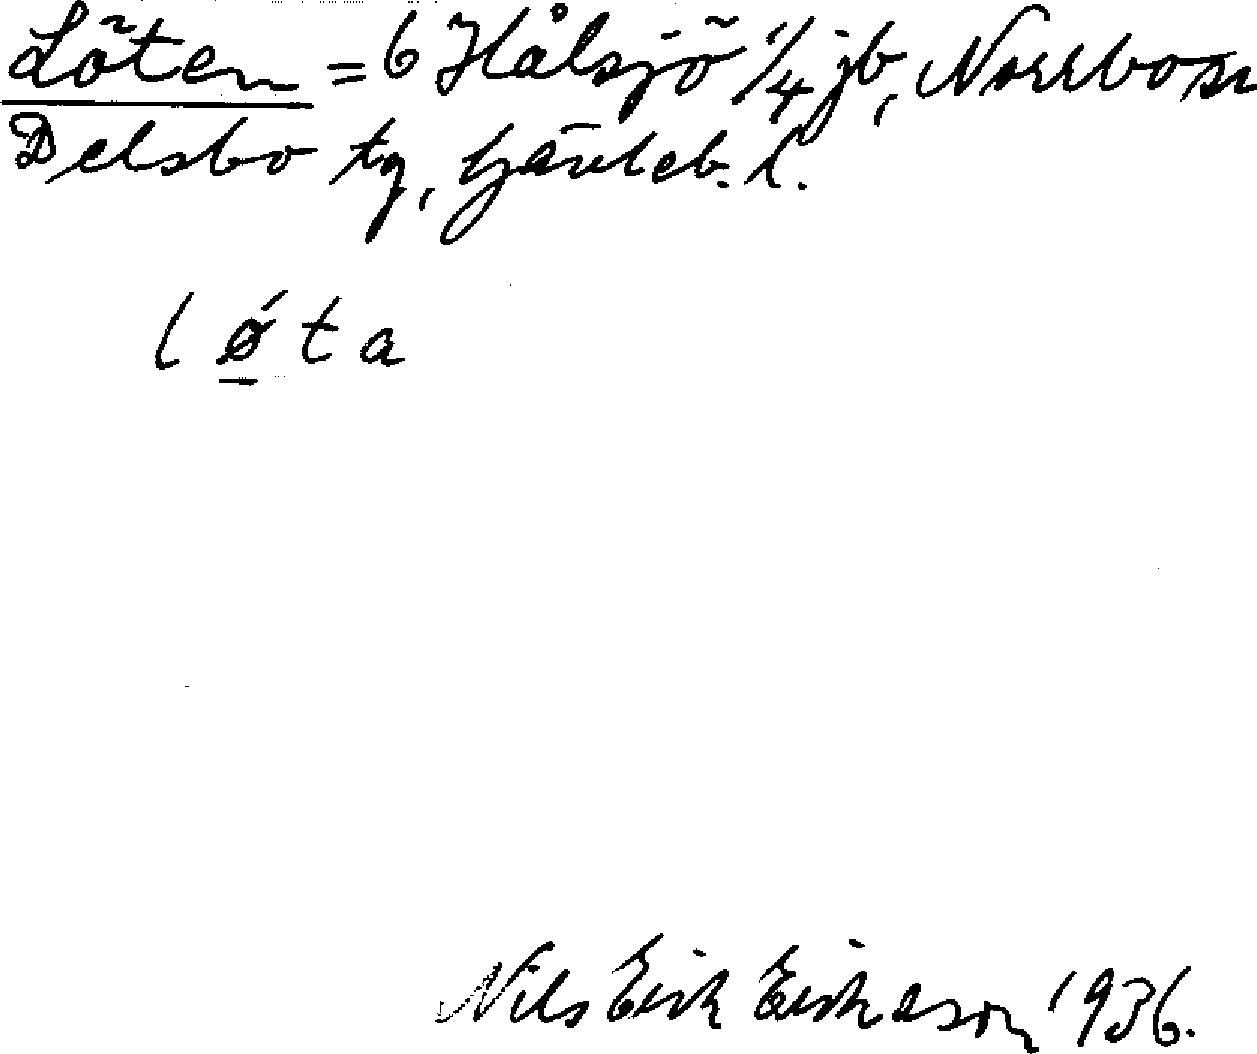 Löten = 6 Hålsjö 1/4 jb, Norrbo sn
Delsbo tg, Gävleb. l.
l ø t a
Nils Erik Eriksson 1936.